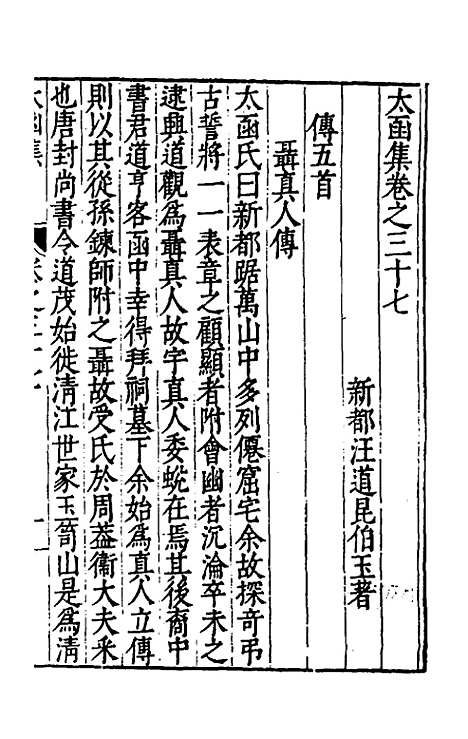 太函集卷之三十七
新都汪道昆伯玉著
傳五首
聶真人傳
太函氏曰新都踞萬山中多列僊窟宅余故探奇弔
古誓將一一表章之顧顯者附會幽者沉淪卒未之
逮興道觀爲聶真人故宇真人委蛻在焉其後裔中
書君道亨客函中幸得拜祠墓下余始爲真人立傳
則以其從孫鍊師附之聶故受氏於周葢衞大夫采
也唐封尚書令道茂始徙淸江世家玉笥山是爲淸